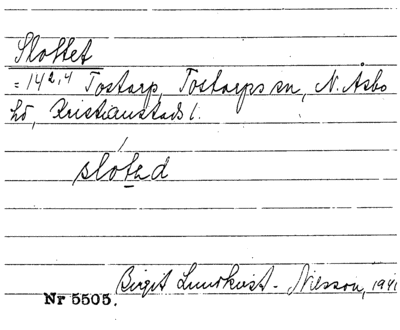 Slottet
= 14²,⁴ Tostarp, Tostarps sn, N. Åsbo
hd, Kristianstads l.
slotəd
Birgit Lundkvist-Nilsson, 1941
Nr 5505.